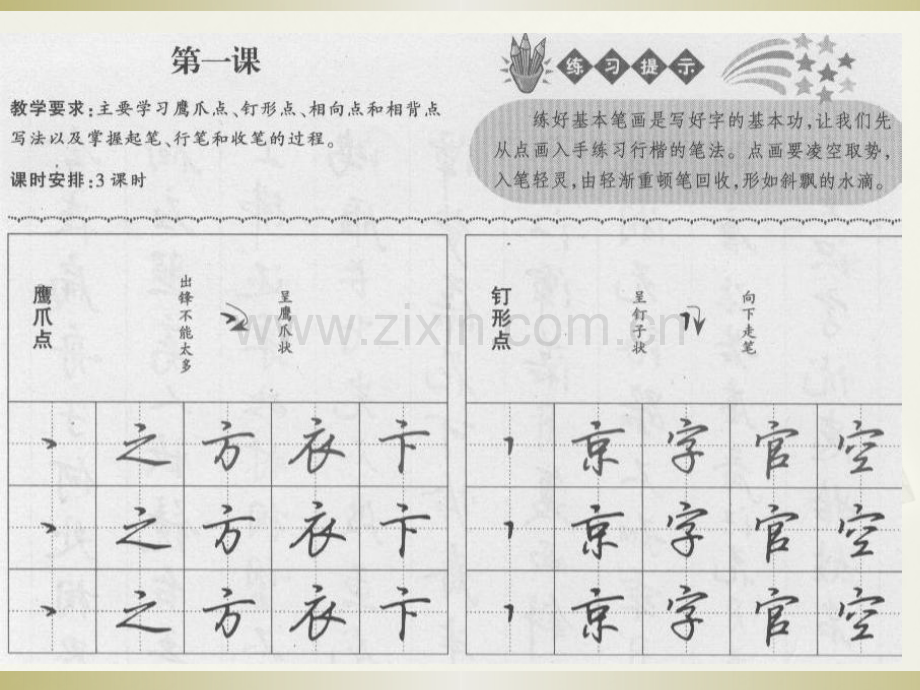 第一课
教学要求:主要学习鹰爪点、钉形点、相向点和相背点
写法以及掌握起笔、行笔和收笔的过程。
课时安排:3 课时
练习提示
练好基本笔画是写好字的基本功,让我们先
从点画入手练习行楷的笔法。点画要凌空取势,
入笔轻灵,由轻渐重顿笔回收,形如斜飘的水滴。
鹰爪点
出锋不能太多
呈鹰爪状
钉形点
呈钉子状
向下走笔
www.zixin.com.cn
丶 之 方 衣 卞
丶 之 方 衣 卞
丶 之 方 衣 卞
丶 京 字 官 空
丶 京 字 官 空
丶 京 字 官 空